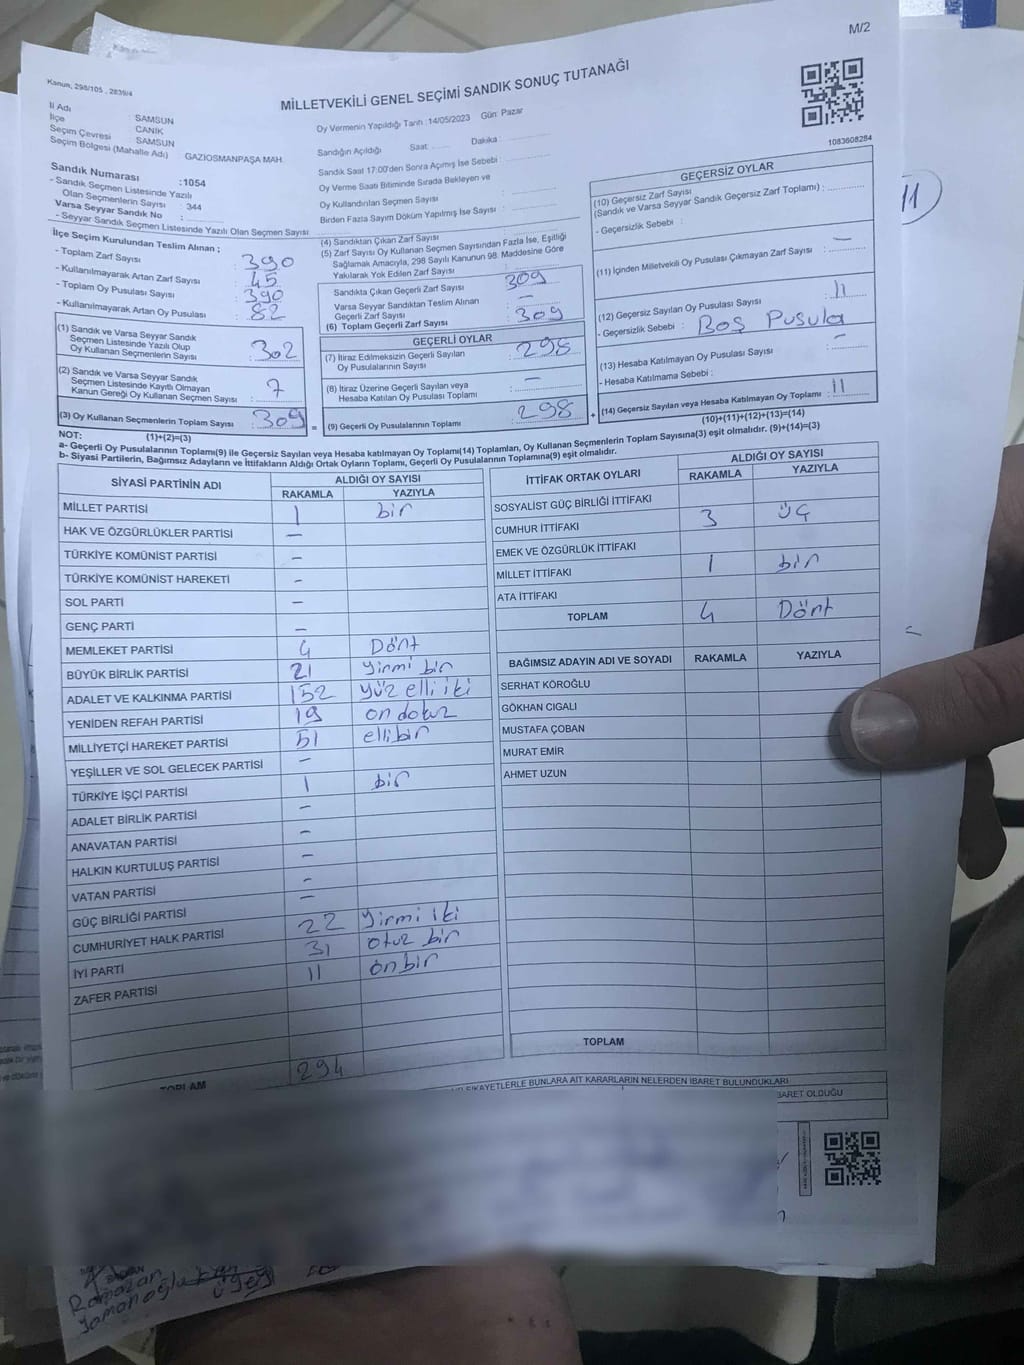 M/2
Kanun, 298/105 , 2839/4
MİLLETVEKİLİ GENEL SEÇİMİ SANDIK SONUÇ TUTANAĞI
1083608284
İl Adı : SAMSUN
İlçe : CANİK
Seçim Çevresi : SAMSUN
Seçim Bölgesi (Mahalle Adı) GAZIOSMANPAŞA MAH.
Sandık Numarası :1054
- Sandık Seçmen Listesinde Yazılı
Olan Seçmenlerin Sayısı 344
Varsa Seyyar Sandık No :
- Seyyar Sandık Seçmen Listesinde Yazılı Olan Seçmen Sayısı
Oy Vermenin Yapıldığı Tarih :14/05/2023 Gün Pazar
Sandığın Açıldığı Saat Dakika :
Sandık Saat 17:00'den Sonra Açımış İse Sebebi :
Oy Verme Saati Bitiminde Sırada Bekleyen ve
Oy Kullandırılan Seçmen Sayısı :
Birden Fazla Sayım Döküm Yapılmış İse Sayısı :
İlçe Seçim Kurulundan Teslim Alınan ;
- Toplam Zarf Sayısı : 390
- Kullanılmayarak Artan Zarf Sayısı : 45
- Toplam Oy Pusulası Sayısı : 390
- Kullanılmayarak Artan Oy Pusulası : 82
(1) Sandık ve Varsa Seyyar Sandık
Seçmen Listesinde Yazılı Olup
Oy Kullanan Seçmenlerin Sayısı : 302
(2) Sandık ve Varsa Seyyar Sandık
Seçmen Listesinde Kayıtlı Olmayan
Kanun Gereği Oy Kullanan Seçmen Sayısı : 7
(3) Oy Kullanan Seçmenlerin Toplam Sayısı : 309
(1)+(2)=(3)
(4) Sandıktan Çıkan Zarf Sayısı
(5) Zarf Sayısı Oy Kullanan Seçmen Sayısından Fazla İse, Eşitliği
Sağlamak Amacıyla, 298 Sayılı Kanunun 98. Maddesine Göre
Yakılarak Yok Edilen Zarf Sayısı :
Sandıkta Çıkan Geçerli Zarf Sayısı : 309
Varsa Seyyar Sandıktan Teslim Alınan
Geçerli Zarf Sayısı : -
(6) Toplam Geçerli Zarf Sayısı : 309
GEÇERLİ OYLAR
(7) İtiraz Edilmeksizin Geçerli Sayılan
Oy Pusulalarının Sayısı : 298
(8) İtiraz Üzerine Geçerli Sayılan veya
Hesaba Katılan Oy Pusulası Toplamı : -
= (9) Geçerli Oy Pusulalarının Toplamı : 298 +
GEÇERSİZ OYLAR
(10) Geçersiz Zarf Sayısı
(Sandık ve Varsa Seyyar Sandık Geçersiz Zarf Toplamı) :
- Geçersizlik Sebebi :
(11) İçinden Milletvekili Oy Pusulası Çıkmayan Zarf Sayısı : -
(12) Geçersiz Sayılan Oy Pusulası Sayısı : 11
- Geçersizlik Sebebi : Boş Pusula
(13) Hesaba Katılmayan Oy Pusulası Sayısı : -
- Hesaba Katılmama Sebebi :
(14) Geçersiz Sayılan veya Hesaba Katılmayan Oy Toplamı : 11
(10)+(11)+(12)+(13)=(14)
11
NOT:
a- Geçerli Oy Pusulalarının Toplamı(9) ile Geçersiz Sayılan veya Hesaba katılmayan Oy Toplamı(14) Toplamları, Oy Kullanan Seçmenlerin Toplam Sayısına(3) eşit olmalıdır. (9)+(14)=(3)
b- Siyasi Partilerin, Bağımsız Adayların ve İttifakların Aldığı Ortak Oyların Toplamı, Geçerli Oy Pusulalarının Toplamına(9) eşit olmalıdır.
SİYASİ PARTİNİN ADI ALDIĞI OY SAYISI
RAKAMLA YAZIYLA
MİLLET PARTİSİ 1 bir
HAK VE ÖZGÜRLÜKLER PARTİSİ -
TÜRKİYE KOMÜNİST PARTİSİ -
TÜRKİYE KOMÜNİST HAREKETİ -
SOL PARTİ -
GENÇ PARTİ -
MEMLEKET PARTİSİ 4 Dört
BÜYÜK BİRLİK PARTİSİ 21 yirmi bir
ADALET VE KALKINMA PARTİSİ 152 yüz elli iki
YENİDEN REFAH PARTİSİ 19 on dokuz
MİLLİYETÇİ HAREKET PARTİSİ 51 ellibir
YEŞİLLER VE SOL GELECEK PARTİSİ -
TÜRKİYE İŞÇİ PARTİSİ 1 bir
ADALET BİRLİK PARTİSİ -
ANAVATAN PARTİSİ -
HALKIN KURTULUŞ PARTİSİ -
VATAN PARTİSİ -
GÜÇ BİRLİĞİ PARTİSİ -
CUMHURİYET HALK PARTİSİ 22 yirmi iki
İYİ PARTİ 31 otuz bir
ZAFER PARTİSİ 11 on bir
TOPLAM 294
İTTİFAK ORTAK OYLARI ALDIĞI OY SAYISI
RAKAMLA YAZIYLA
SOSYALİST GÜÇ BİRLİĞİ İTTİFAKI
CUMHUR İTTİFAKI 3 üç
EMEK VE ÖZGÜRLÜK İTTİFAKI
MİLLET İTTİFAKI 1 bir
ATA İTTİFAKI
TOPLAM 4 Dört
BAĞIMSIZ ADAYIN ADI VE SOYADI RAKAMLA YAZIYLA
SERHAT KÖROĞLU
GÖKHAN CIGALI
MUSTAFA ÇOBAN
MURAT EMİR
AHMET UZUN
TOPLAM
ŞİKAYETLERLE BUNLARA AİT KARARLARIN NELERDEN İBARET BULUNDUKLARI
İBARET OLDUĞU
Ramazan
Yamanoğlu
üye